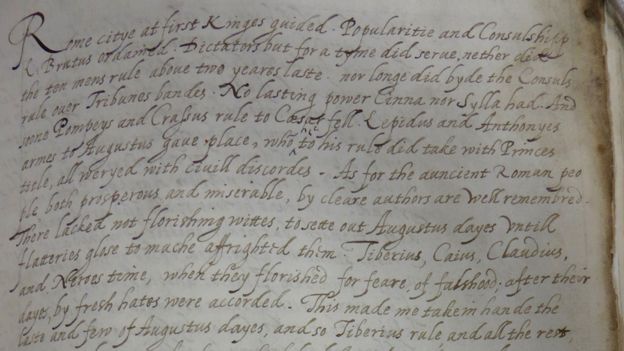 Rome citye at first Kinges guided. Popularitie and Consulship
L. Brutus ordained. Dictators but for a tyme did serve, nether did
the ten mens rule above two yeares laste. nor longe did byde the Consuls
rule over Tribunes bandes. No lasting power Cinna nor Sylla had. And
soone Pompeys and Crassus rule to Cæsar fell. Lepidus and Anthonyes
armes to Augustus gave place, who to his rule did take with Princes
title, all weryed with civill discordes. As for the auncient Roman peo
ple both prosperous and miserable, by cleare authors are well remembred.
There lacked not florishing wittes, to sette out Augustus dayes untill
flatteries glose to mache affrighted them. Tiberius, Caius, Claudius,
and Neroes teme, when they florished for feare, of falshood; after their
dayes, by fresh hates were accorded. This made me take in hande the
laste and few of Augustus dayes, and so Tiberius rule and all the rest,